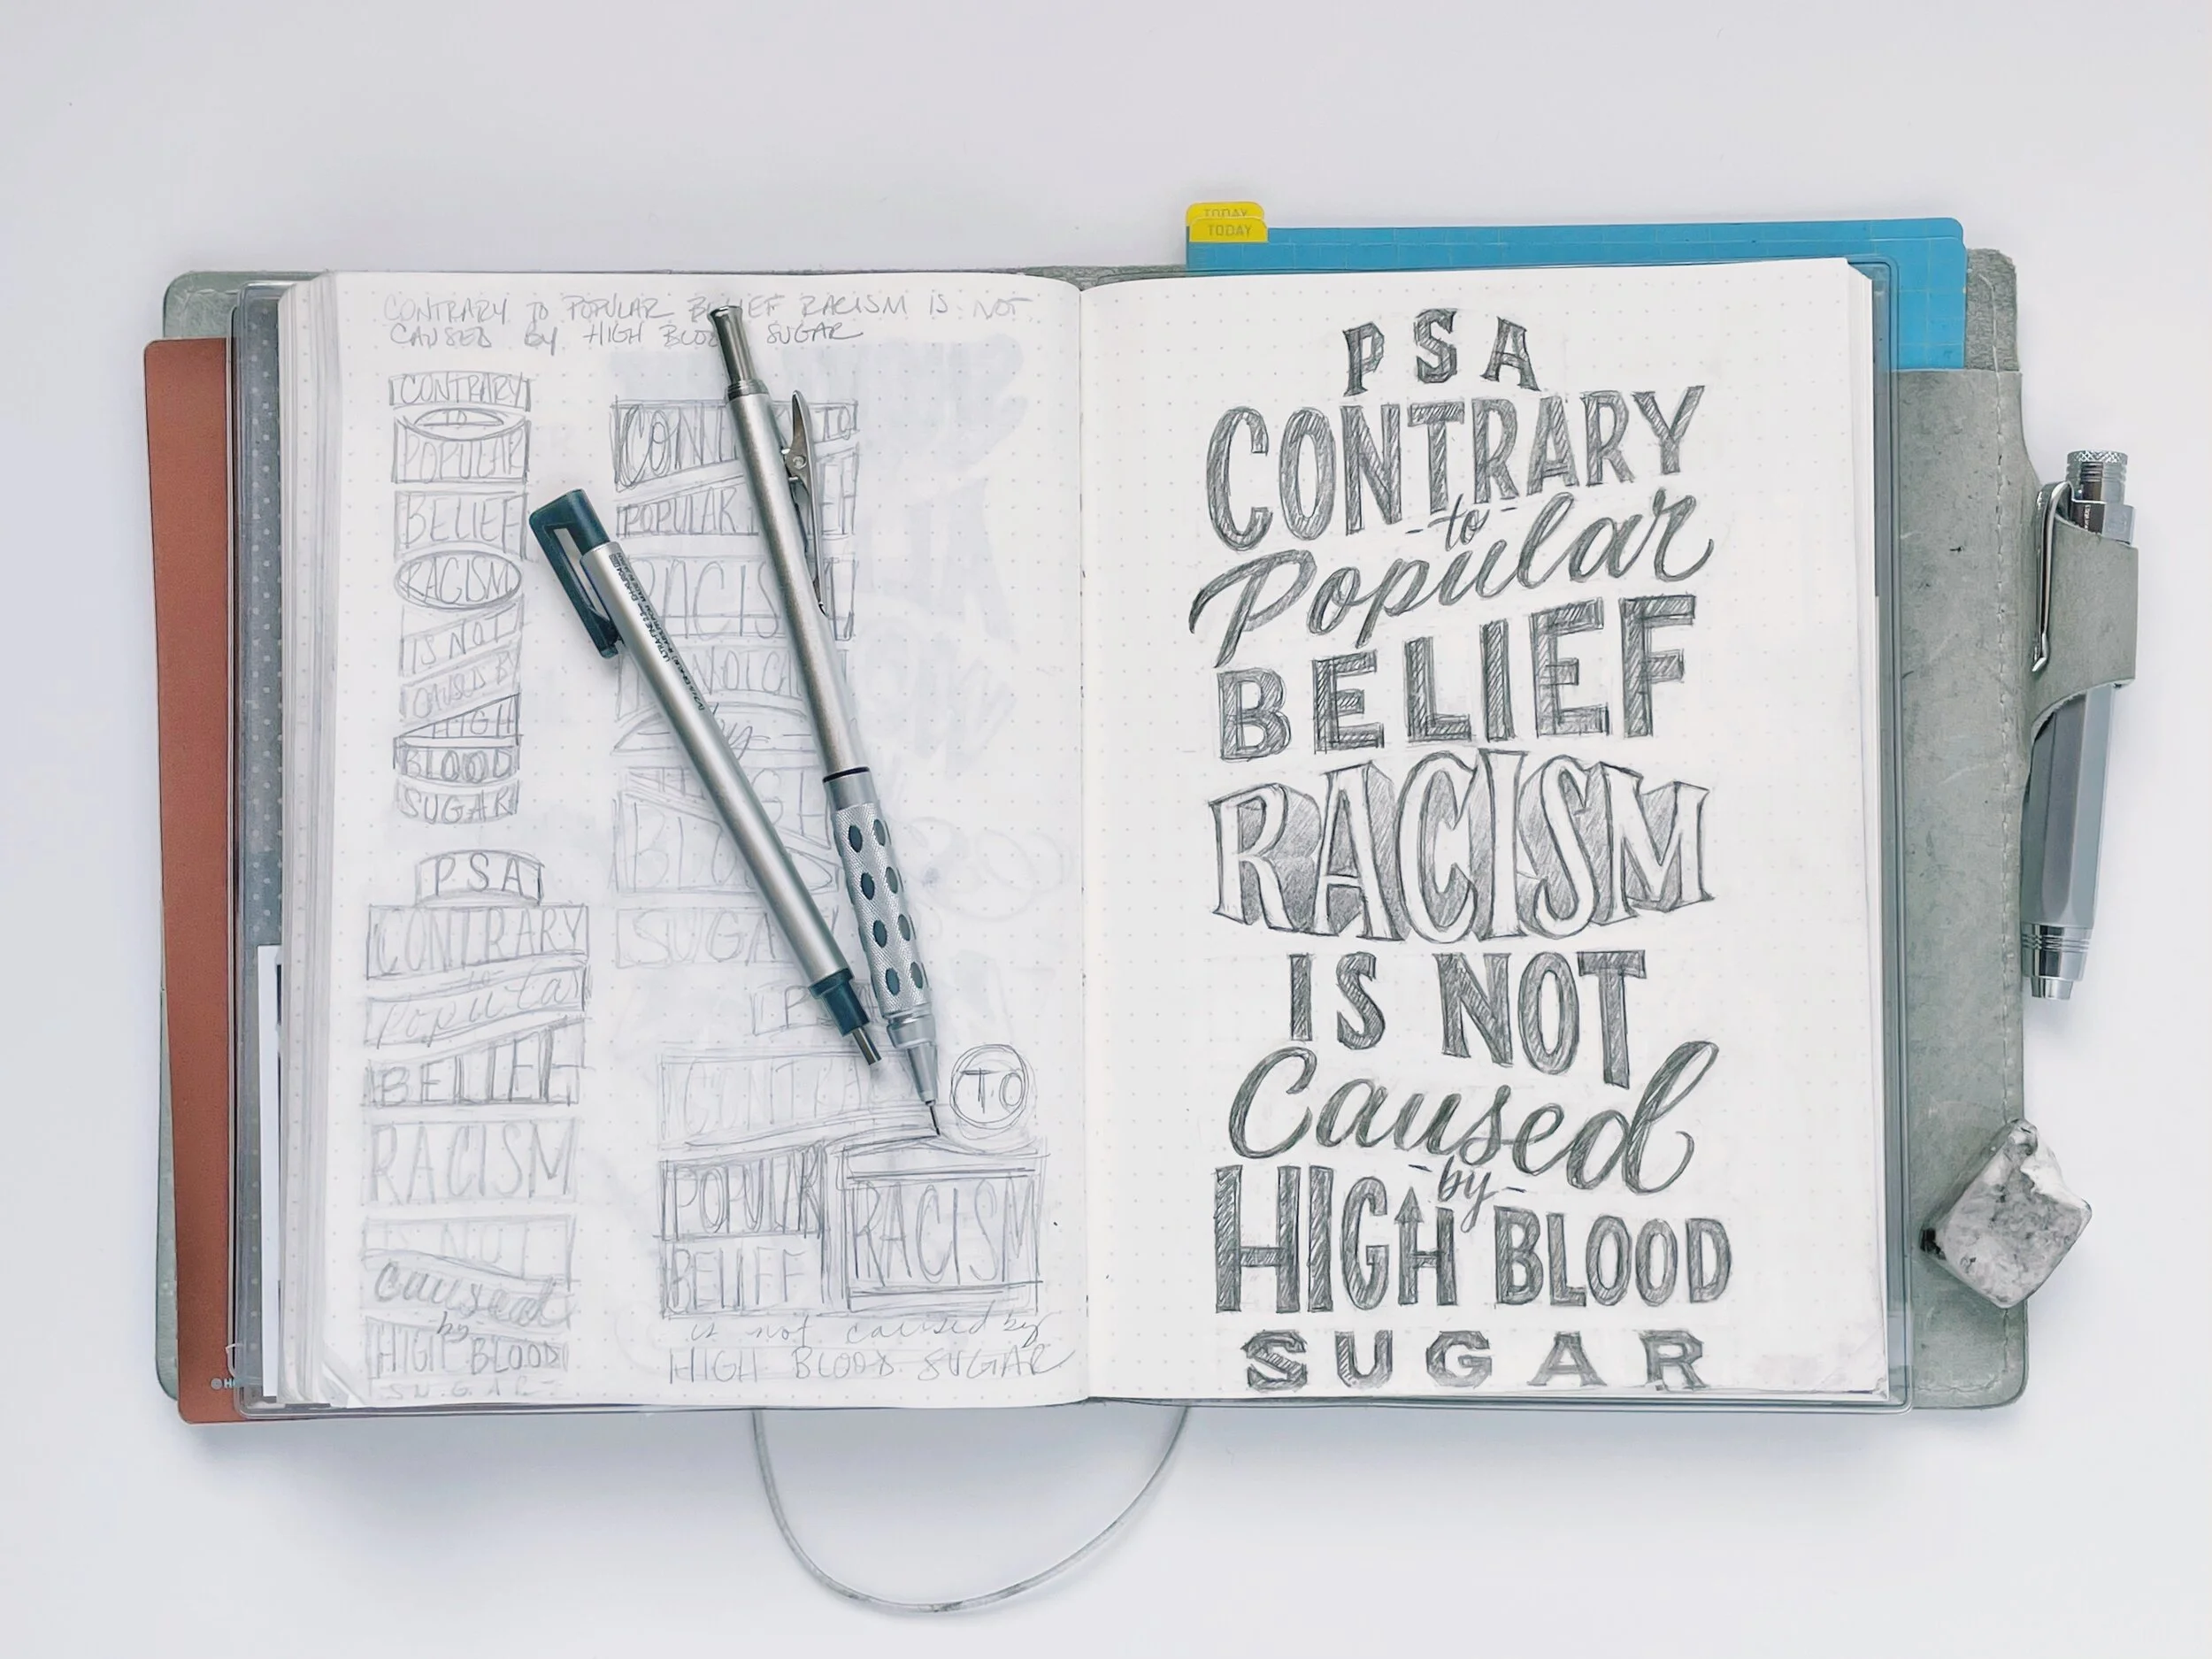 CONTRARY TO POPULAR BELIEF RACISM IS NOT
CAUSED By HIGH BLOOD SUGAR
CONTRARY
TO
POPULAR
BELIEF
RACISM
IS NOT
CAUSED BY
HIGH
BLOOD
SUGAR
PSA
CONTRARY
to
Popular
BELIEF
RACISM
IS NOT
caused
by
HIGH BLOOD
SUGAR
TO
POPULAR
RACISM
by
TO
POPULAR
BELIEF
RACISM
is not caused by
HIGH BLOOD SUGAR
TODAY
TODAY
PSA
CONTRARY
-to-
Popular
BELIEF
RACISM
IS NOT
Caused
-by-
HIGH BLOOD
SUGAR